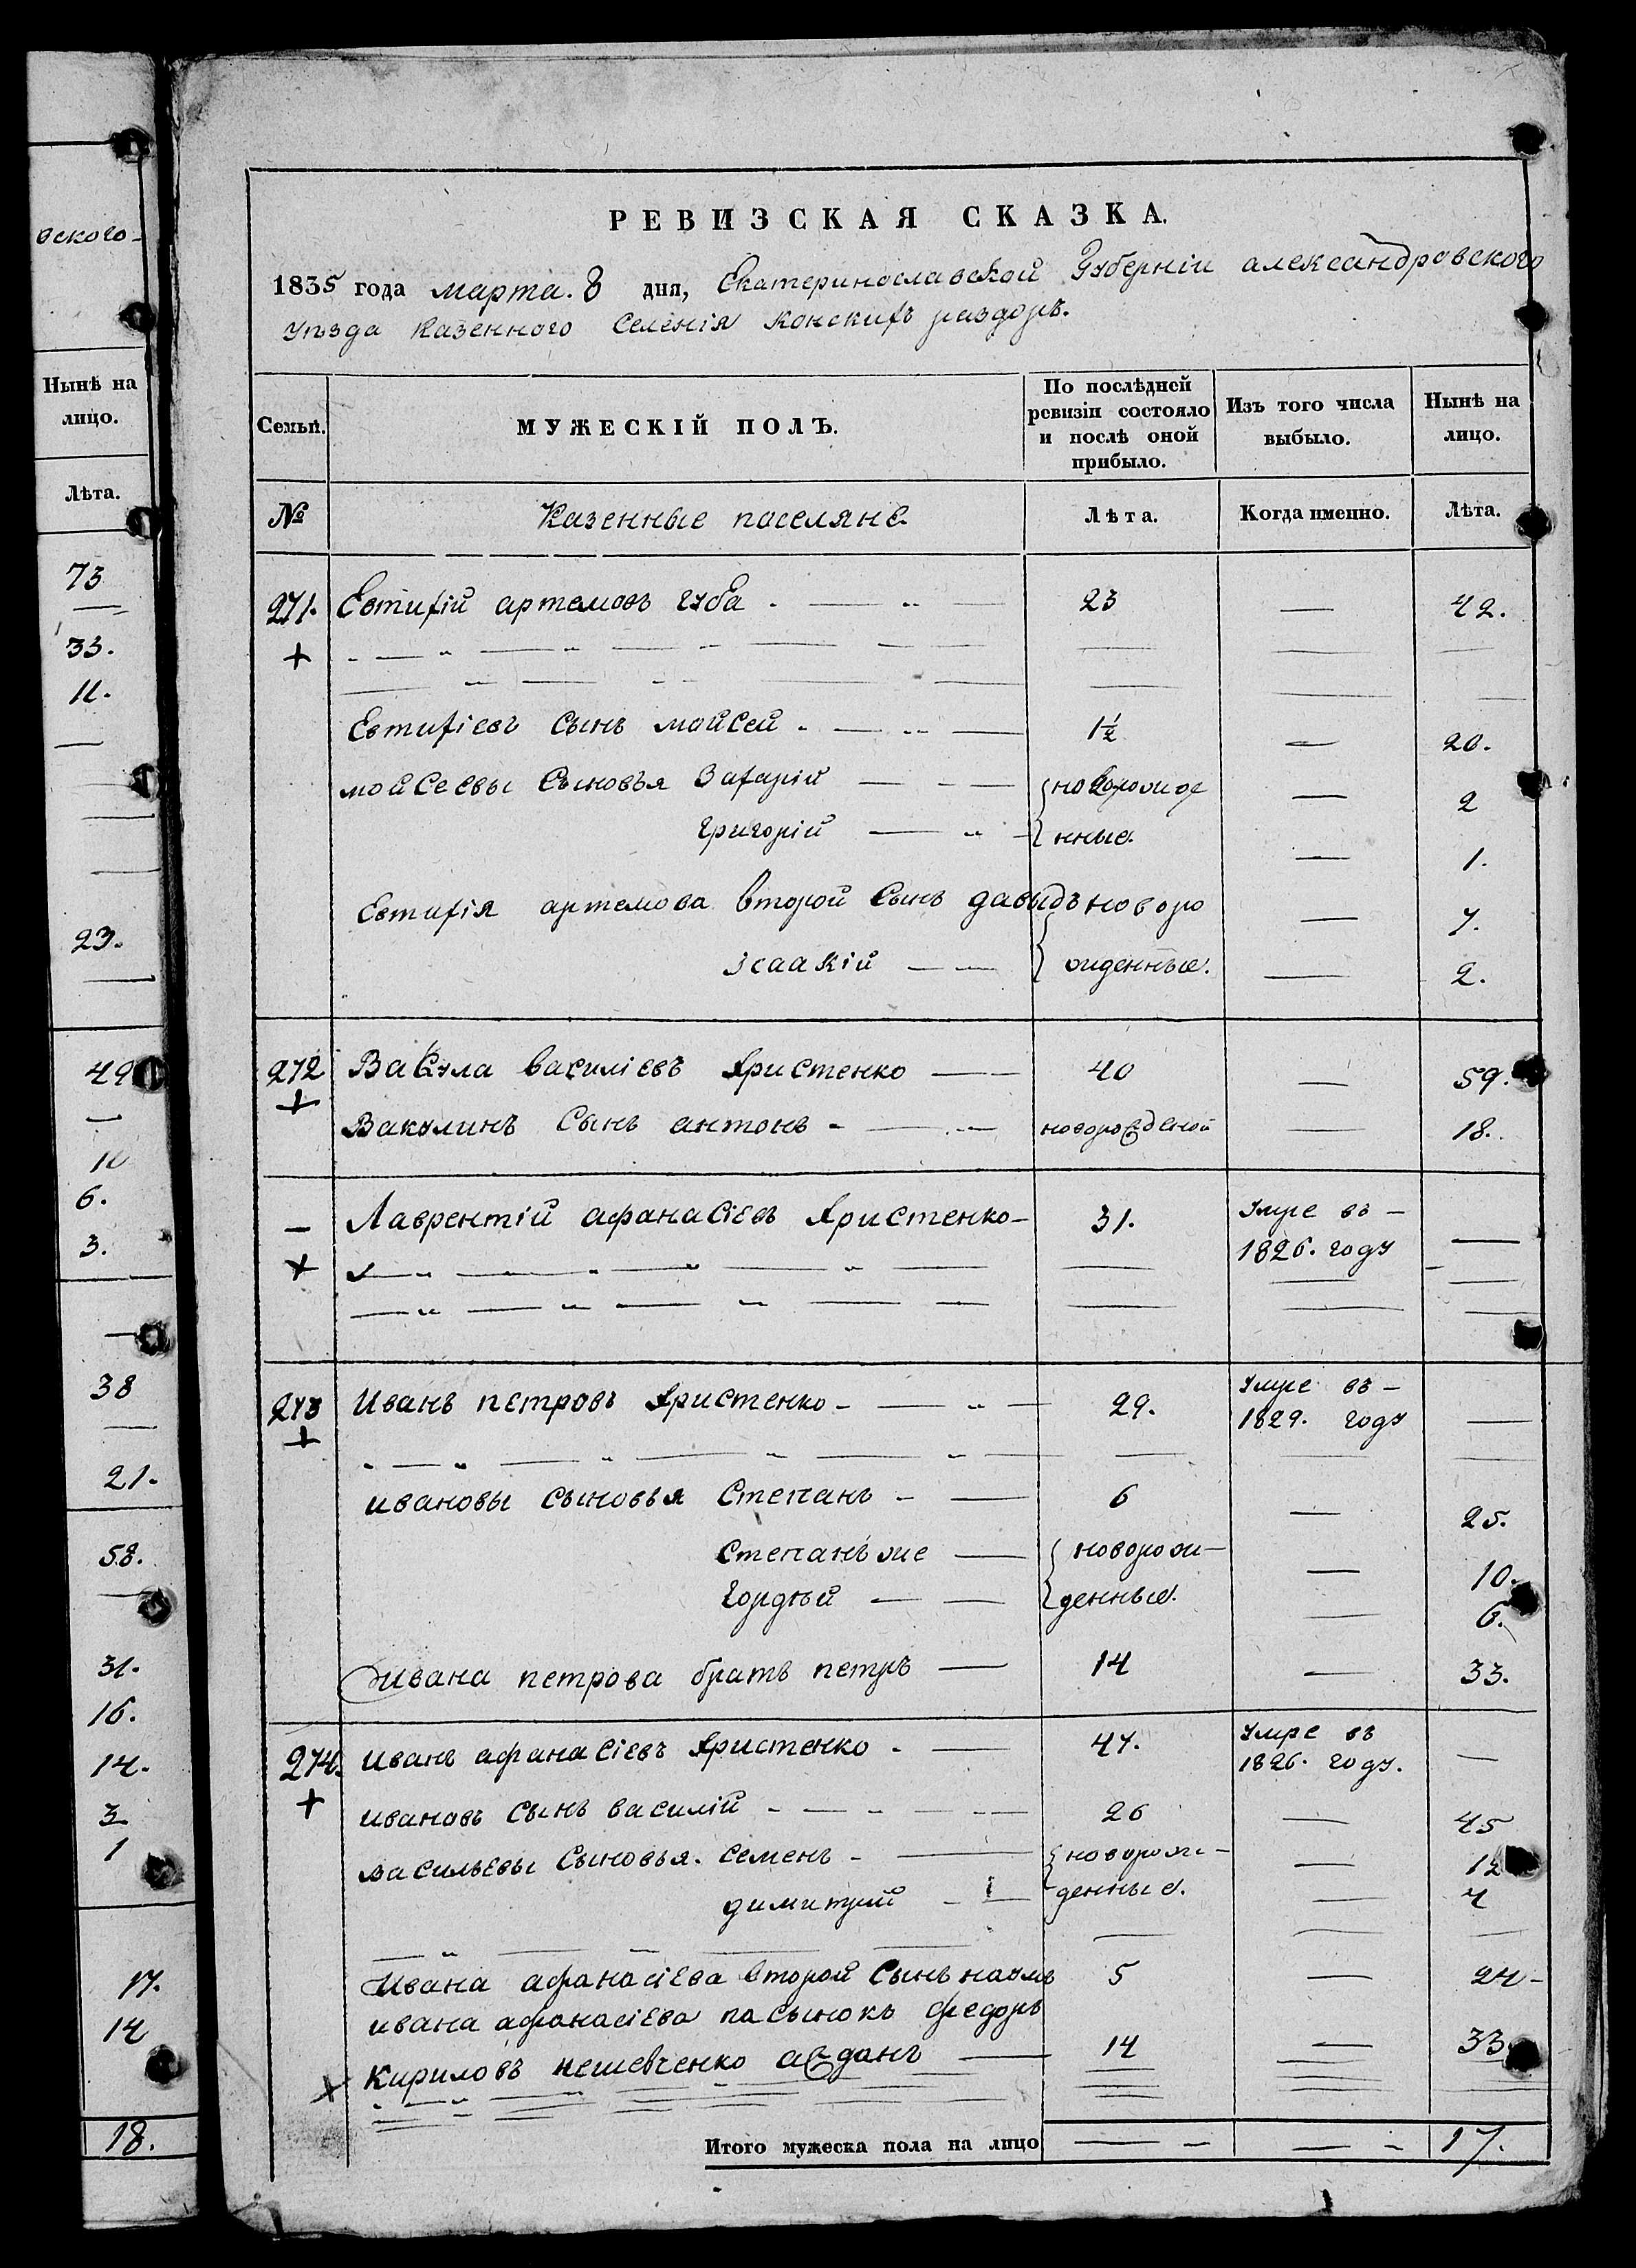 вского
Нынѣ на
лицо.
Лѣта.
73
33.
11.
23.
49
10
6.
3.
38
21.
58.
31.
16.
14.
3
1
17.
14
18.
РЕВИЗСКАЯ СКАЗКА.
1835 года марта. 8 дня, Екатеринославской Губерніи александровского
уѣзда казенного Селенія Конскихъ раздоръ.
Семьи. МУЖЕСКІЙ ПОЛЪ. По послѣдней ревизіи состояло и послѣ оной прибыло. Изъ того числа выбыло. Нынѣ на лицо.
№ Казенные поселяне Лѣта. Когда именно. Лѣта.
271. Евтихій артемовъ губа 23 — 42.
Евтихіевъ Сынъ мойсей 1½ — 20.
мойсеевы Сыновья Захарій новорожде — 2
григорій нные. — 1.
Евтихія артемова второй Сынъ давыдъ новоро — 7.
ісаакій жденные. — 2.
272 Вакула василіевъ Христенко 40 — 59.
Вакулинъ Сынъ антонъ новорожденой — 18.
— Лаврентій афанасіевъ Христенко 31. Умре въ —
1826. году
273 Иванъ петровъ Христенко 29. Умре въ —
1829. году
ивановы Сыновья Степанъ 6 — 25.
Степанъ же новорож — 10.
Гордѣй денные. — 6.
Ивана петрова братъ петръ 14 — 33.
274. иванъ афанасіевъ Христенко 47. Умре въ —
1826. году.
ивановъ Сынъ василій 26 — 45
васильевы Сыновья. Семенъ новорож — 12
димитрий денные. — 4
Ивана афанасіева второй Сынъ наумъ 5 — 24
ивана афанасіева пасынокъ федоръ
Кириловъ авданъ 14 — 33
Итого мужеска пола на лицо — — 17.